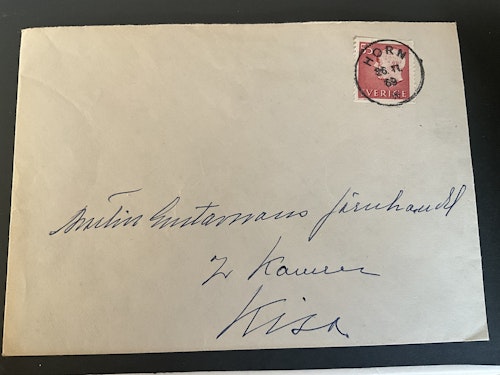 HORN
69
SVERIGE
Martin Gustavssons Järnhandel
Kisa